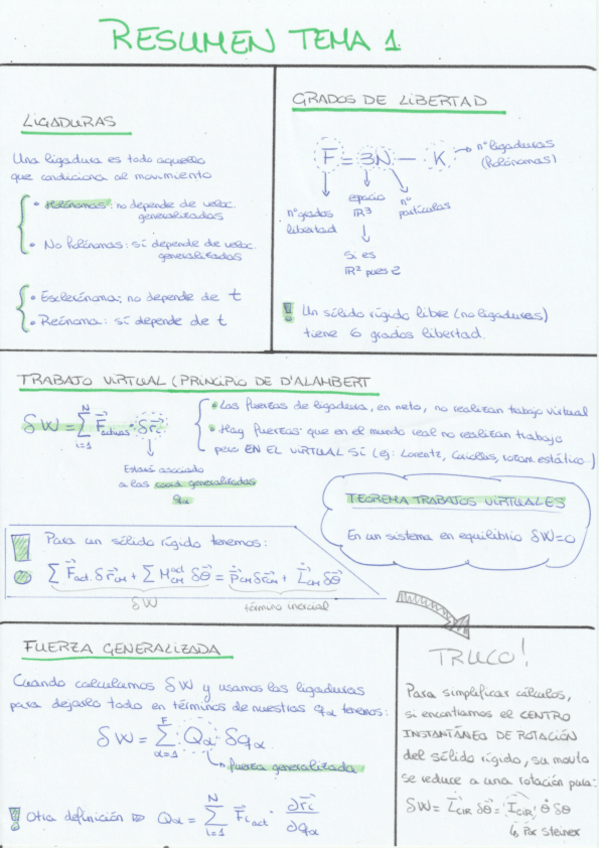 RESUMEN TEMA 1
LIGADURAS
Una ligadura es todo aquello
que condiciona al movimiento
• Holónomas: no depende de veloc.
generalizadas
• No holónomas: sí depende de veloc.
generalizadas
• Esclerónoma: no depende de t
• Reónoma: sí depende de t
GRADOS DE LIBERTAD
F = 3N − K → nº ligaduras
(holónomas)
nº grados
libertad
espacio
ℝ³
nº
partículas
Si es
ℝ² pues 2
! Un sólido rígido libre (no ligaduras)
tiene 6 grados libertad.
TRABAJO VIRTUAL (PRINCIPIO DE D'ALAMBERT
δW = Σ_{i=1}^{N} F⃗_{activas} · δr⃗_i
Estará asociado
a las coord. generalizadas
q_α
• Las fuerzas de ligadura, en neto, no realizan trabajo virtual
• Hay fuerzas que en el mundo real no realizan trabajo
pero EN EL VIRTUAL SÍ (ej: Lorentz, Coriolis, rozam. estático...)
TEOREMA TRABAJOS VIRTUALES
En un sistema en equilibrio δW=0
! Para un sólido rígido tenemos:
Σ F⃗_{act.} δr⃗_{CM} + Σ M⃗_{CM}^{act} δθ⃗ = ṗ⃗_{CM} δr⃗_{CM} + L̇⃗_{CM} δθ⃗
δW
término inercial
FUERZA GENERALIZADA
Cuando calculamos δW y usamos las ligaduras
para dejarlo todo en términos de nuestras q_α tenemos:
δW = Σ_{α=1}^{F} Q_α δq_α
fuerza generalizada
! Otra definición ⇒ Q_α = Σ_{i=1}^{N} F⃗_{i act} · ∂r⃗_i/∂q_α
TRUCO!
Para simplificar cálculos,
si encontramos el CENTRO
INSTANTÁNEO DE ROTACIÓN
del sólido rígido, su movto
se reduce a una rotación pura:
δW = L̇⃗_{CIR} δθ⃗ = I_{CIR} · θ̈ δθ
↳ Por Steiner